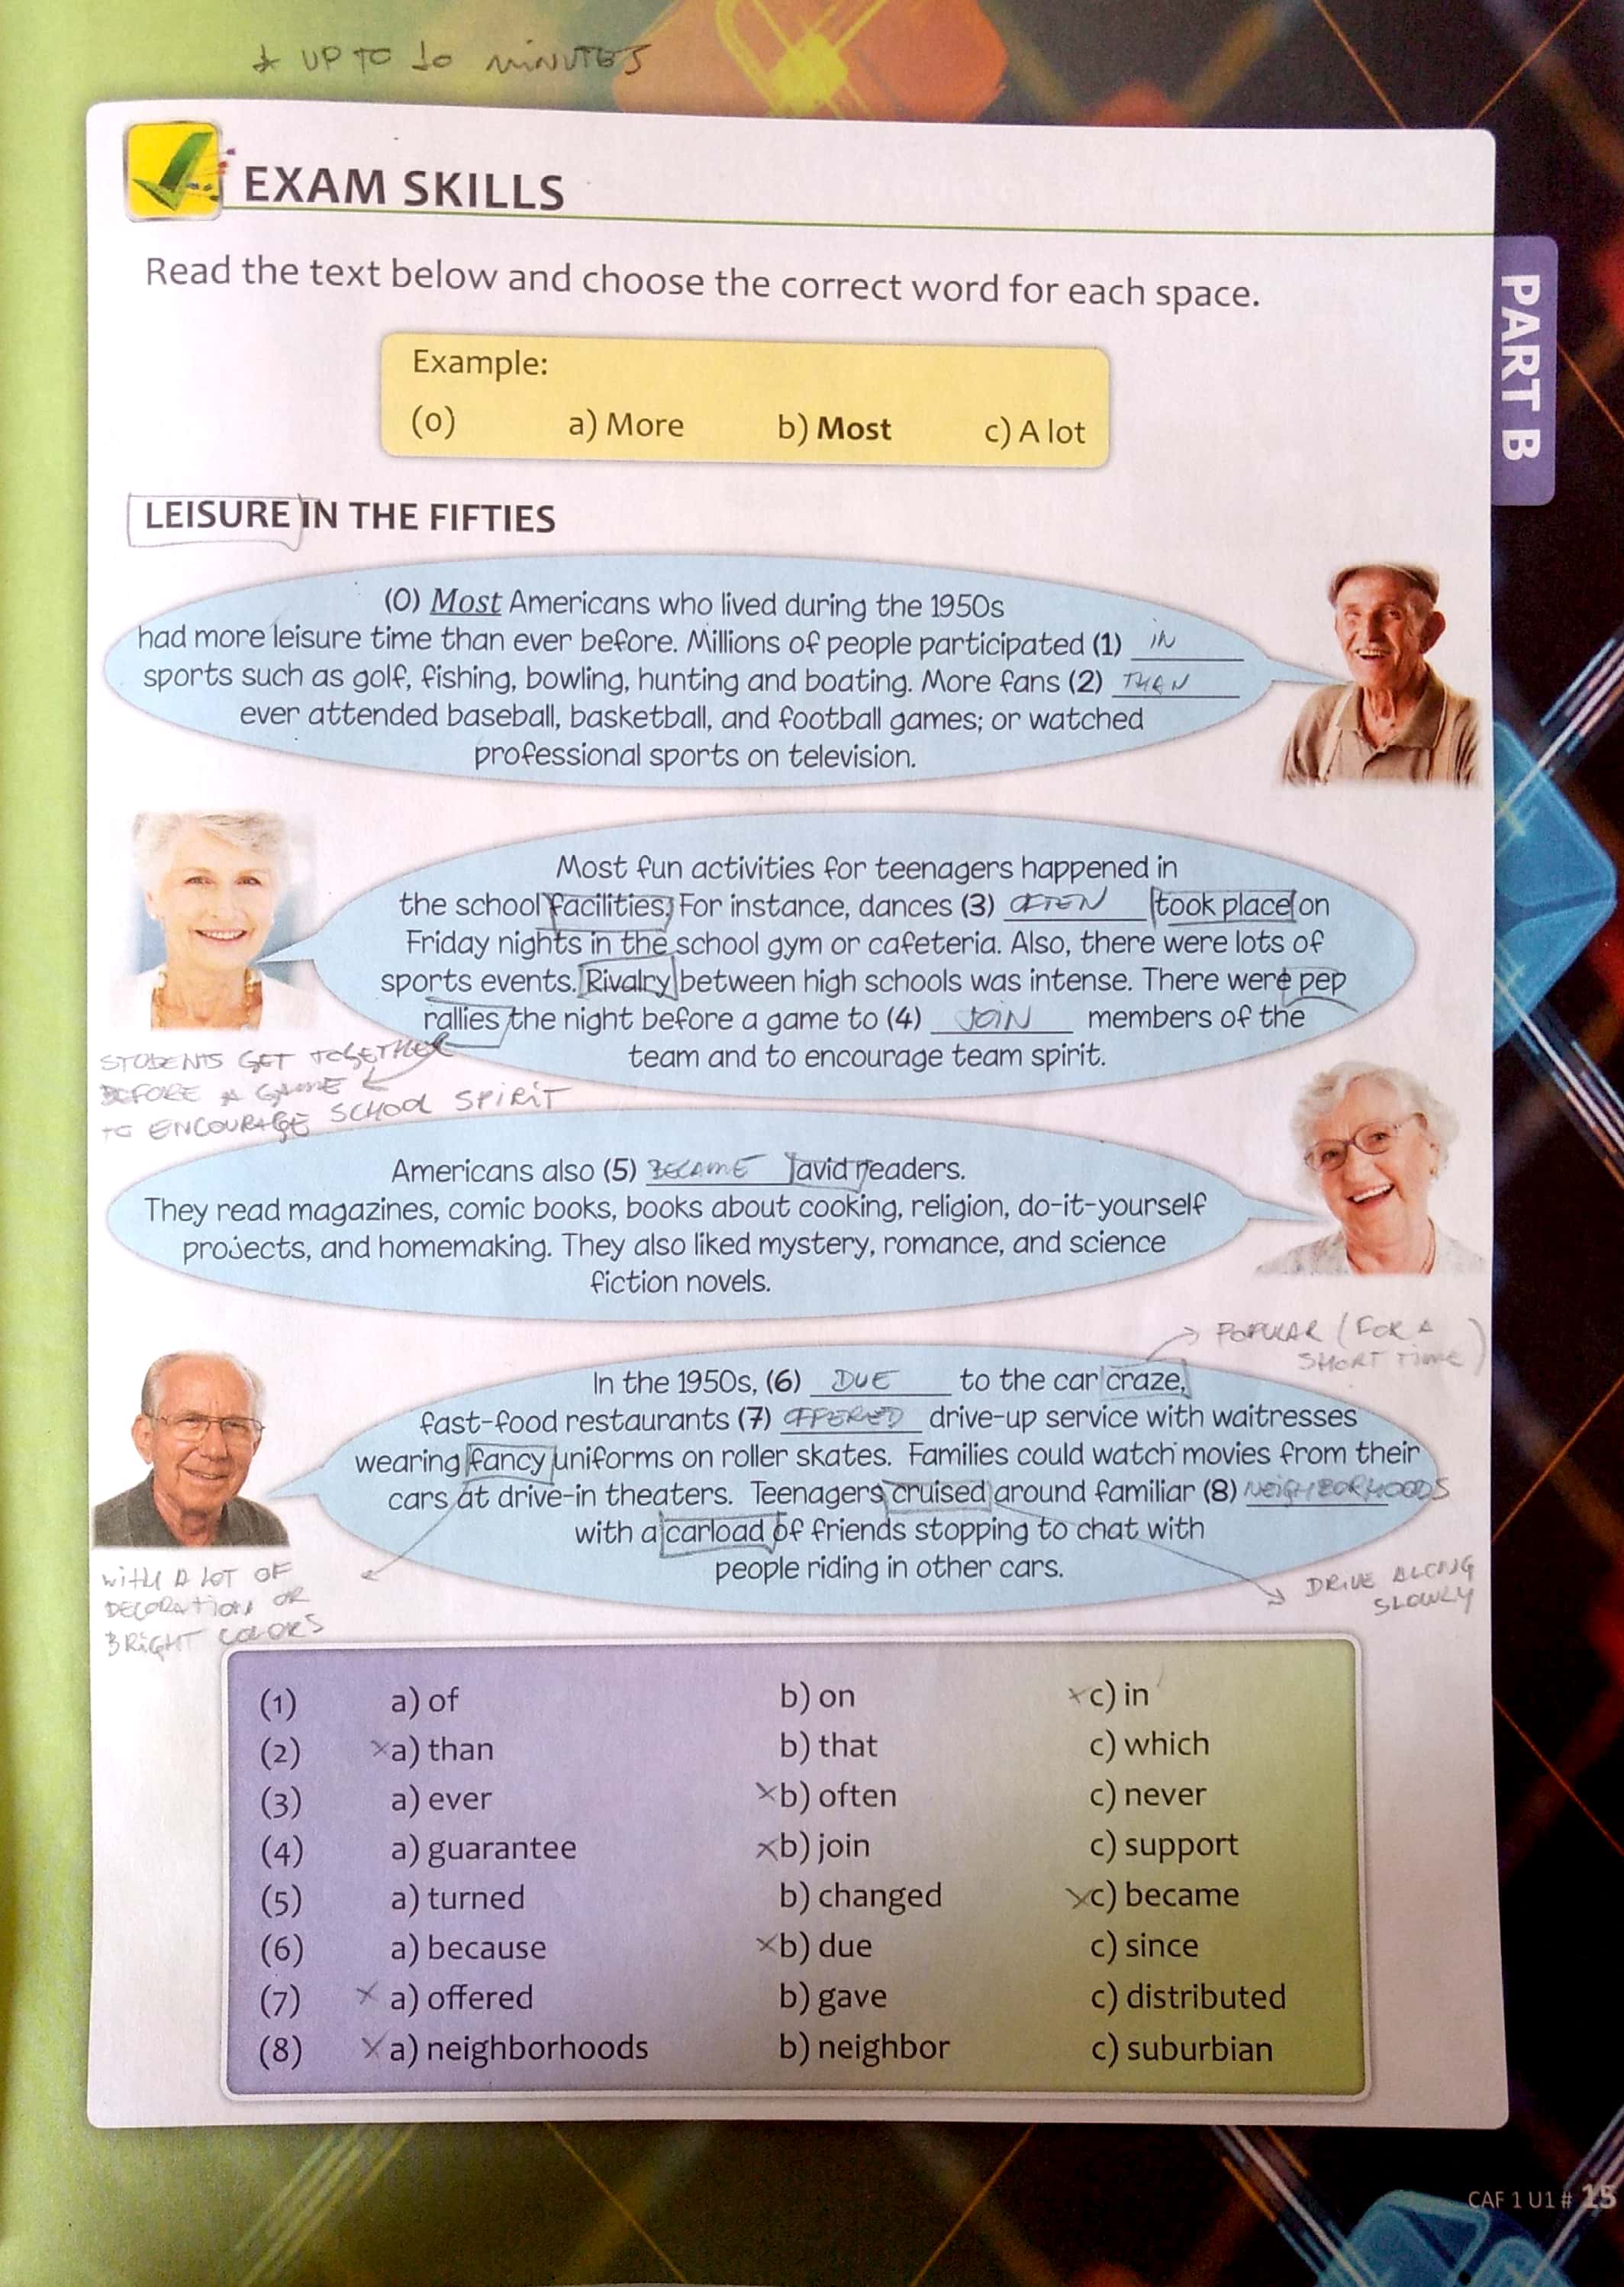 * UP TO 10 MINUTES
EXAM SKILLS
Read the text below and choose the correct word for each space.
PART B
Example:
(0) a) More b) Most c) A lot
LEISURE IN THE FIFTIES
(0) Most Americans who lived during the 1950s
had more leisure time than ever before. Millions of people participated (1) IN
sports such as golf, fishing, bowling, hunting and boating. More fans (2) THAN
ever attended baseball, basketball, and football games; or watched
professional sports on television.
Most fun activities for teenagers happened in
the school facilities. For instance, dances (3) OFTEN took place on
Friday nights in the school gym or cafeteria. Also, there were lots of
sports events. Rivalry between high schools was intense. There were pep
rallies the night before a game to (4) JOIN members of the
team and to encourage team spirit.
STUDENTS GET TOGETHER
BEFORE A GAME
TO ENCOURAGE SCHOOL SPIRIT
Americans also (5) BECAME avid readers.
They read magazines, comic books, books about cooking, religion, do-it-yourself
projects, and homemaking. They also liked mystery, romance, and science
fiction novels.
POPULAR (FOR A
SHORT TIME)
In the 1950s, (6) DUE to the car craze,
fast-food restaurants (7) OFFERED drive-up service with waitresses
wearing fancy uniforms on roller skates. Families could watch movies from their
cars at drive-in theaters. Teenagers cruised around familiar (8) NEIGHBORHOODS
with a carload of friends stopping to chat with
people riding in other cars.
WITH A LOT OF
DECORATION OR
BRIGHT COLORS
DRIVE ALONG
SLOWLY
(1) a) of b) on c) in
(2) a) than b) that c) which
(3) a) ever b) often c) never
(4) a) guarantee b) join c) support
(5) a) turned b) changed c) became
(6) a) because b) due c) since
(7) a) offered b) gave c) distributed
(8) a) neighborhoods b) neighbor c) suburbian
CAF 1 U1 # 15